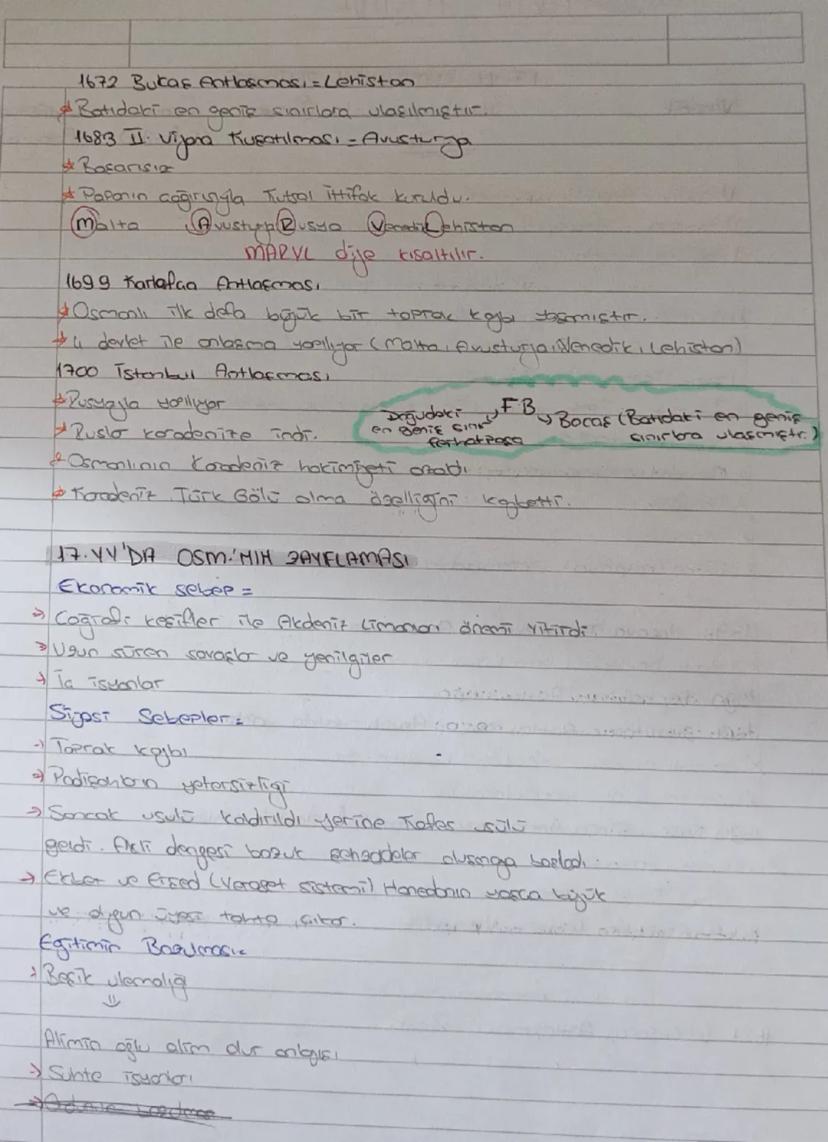 1672 Bucaş Antlaşması = Lehistan
* Batıdaki en geniş sınırlara ulaşılmıştır.
1683 II. Viyana Kuşatılması = Avusturya
* Başarısız
* Papanın çağrısıyla Kutsal İttifak kuruldu.
Malta Avusturya Rusya Venedik Lehistan
MARVL diye kısaltılır.
1699 Karlofça Antlaşması
* Osmanlı ilk defa büyük bir toprak kaybı yaşamıştır.
* 4 devlet ile anlaşma yapılıyor (Malta, Avusturya, Venedik, Lehistan)
1700 İstanbul Antlaşması
* Rusyayla yapılıyor
* Ruslar karadenize indi.
Doğudaki en geniş sınır ferhatpaşa
FB
Bocaş (Batıdaki en geniş sınırlara ulaşmıştır.)
* Osmanlının Karadeniz hakimiyeti azaldı
* Karadeniz Türk Gölü olma özelliğini kaybetti.
17.YY'DA OSM.'NIN ZAYFLAMASI
Ekonomik sebep =
→ Coğrafi keşifler ile Akdeniz Limanları önemi yitirdi
→ Uzun süren savaşlar ve yenilgiler
→ İç isyanlar
Siyasi Sebepler =
→ Toprak kaybı
→ Padişahların yetersizliği
→ Sancak usulü kaldırıldı yerine Kafes usülü
geldi. Akli dengesi bozuk şehzadeler oluşmaya başladı.
→ Ekber ve Erşed (Veraset sistemi) Hanedanın yaşca büyük
ve olgun üyesi tahta çıkar.
Eğitimin Bozulması=
→ Beşik ulemalığı
Alimin oğlu alim olur anlayışı
→ Suhte isyanları